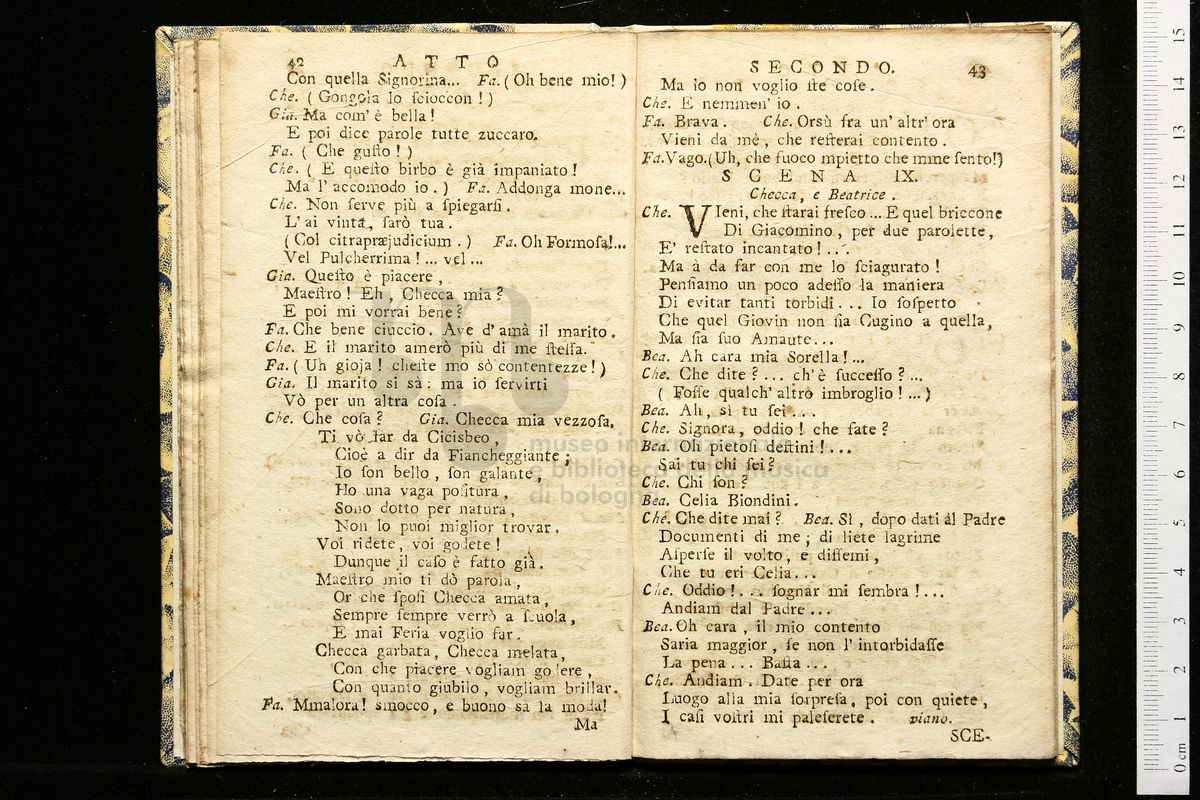 42 ATTO
Con quella Signorina. Fa. (Oh bene mio!)
Che. (Gongola lo ſcioccon!)
Gia. Ma com' è bella!
E poi dice parole tutte zuccaro.
Fa. (Che guſto!)
Che. (E queſto birbo è già impaniato!
Ma l' accomodo io.) Fa. Addonga mone...
Che. Non ſerve più a ſpiegarſi.
L' ai vinta, ſarò tua.
(Col citrapræjudicium.) Fa. Oh Formoſa!...
Vel Pulcherrima!... vel...
Gia. Queſto è piacere,
Maeſtro! Eh, Checca mia?
E poi mi vorrai bene?
Fa. Che bene ciuccio. Ave d' amà il marito.
Che. E il marito amerò più di me ſteſſa.
Fa. (Uh gioja! cheſte mo sò contentezze!)
Gia. Il marito si sà: ma io ſervirti
Vò per un altra coſa.
Che. Che coſa? Gia. Checca mia vezzoſa,
Ti vò far da Cicisbeo,
Cioè a dir da Fiancheggiante;
Io ſon bello, ſon galante,
Ho una vaga poſitura,
Sono dotto per natura,
Non lo puoi miglior trovar.
Voi ridete, voi godete!
Dunque il caſo è fatto già.
Maeſtro mio ti dò parola,
Or che ſpoſi Checca amata,
Sempre ſempre verrò a ſcuola,
E mai Feria voglio far.
Checca garbata, Checca melata,
Con che piacere vogliam godere,
Con quanto giubilo, vogliam brillar.
Fa. Mmalora! smocco, e buono sà la moda!
Ma
SECONDO. 43
Ma io non voglio ſte coſe.
Che. E nemmen' io.
Fa. Brava. Che. Orsù fra un' altr' ora
Vieni da mè, che reſterai contento.
Fa. Vago. (Uh, che fuoco mpietto che mme ſento!)
SCENA IX.
Checca, e Beatrice.
Che. VIeni, che ſtarai freſco... E quel briccone
Di Giacomino, per due parolette,
E' reſtato incantato!...
Ma à da far con me lo ſciagurato!
Penſiamo un poco adeſſo la maniera
Di evitar tanti torbidi... Io ſoſpetto
Che quel Giovin non ſia Cugino a quella,
Ma ſia ſuo Amaute...
Bea. Ah cara mia Sorella!...
Che. Che dite?... ch' è ſucceſſo?...
(Foſſe qualch' altro imbroglio!...)
Bea. Ah, sì tu ſei....
Che. Signora, oddio! che fate?
Bea. Oh pietoſi deſtini!...
Sai tu chi ſei?
Che. Chi ſon?
Bea. Celia Biondini.
Che. Che dite mai? Bea. Sì, dopo dati al Padre
Documenti di me; di liete lagrime
Aſperſe il volto, e diſſemi,
Che tu eri Celia...
Che. Oddio!... ſognar mi ſembra!...
Andiam dal Padre...
Bea. Oh cara, il mio contento
Saria maggior, ſe non l' intorbidaſſe
La pena... Baſta...
Che. Andiam. Date per ora
Luogo alla mia ſorpreſa, poi con quiete,
I caſi voſtri mi paleſerete. viano.
SCE-
museo internazionale
e biblioteca della musica
di bologna
0 cm 1 2 3 4 5 6 7 8 9 10 11 12 13 14 15